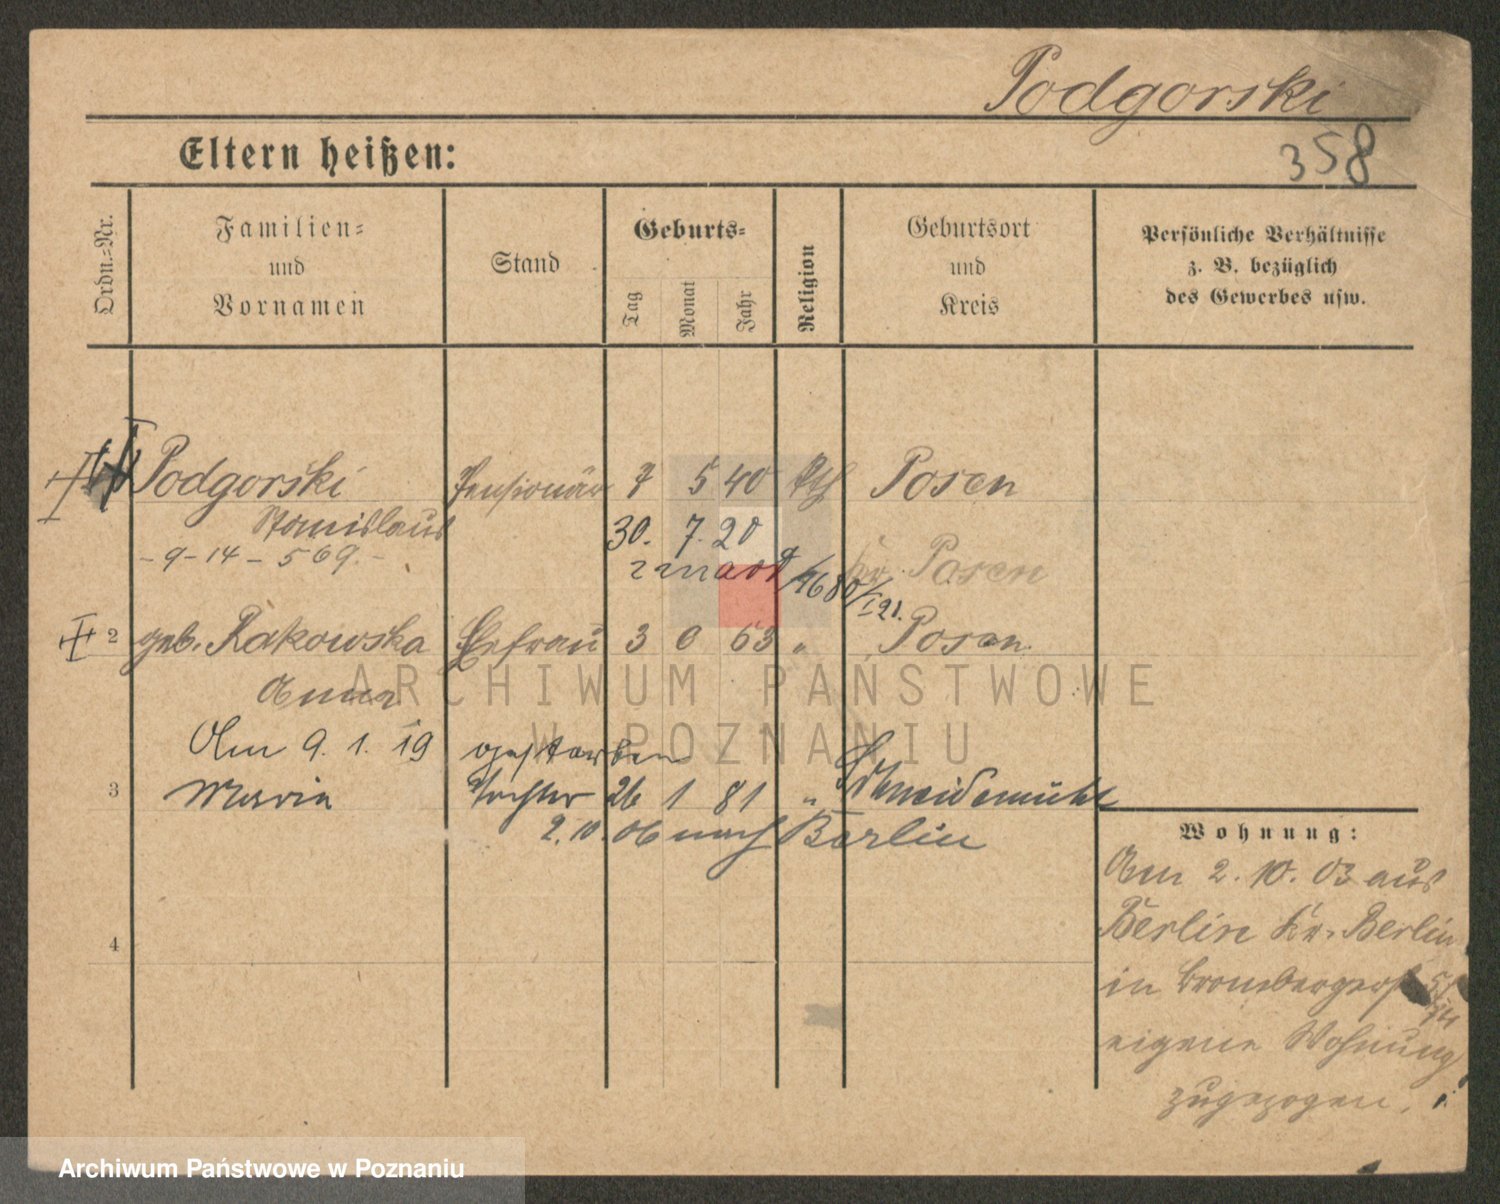 Podgorski
358
Eltern heißen:
Ordn.-Nr.
Familien- und Vornamen
Stand
Geburts-
Tag
Monat
Jahr
Religion
Geburtsort und Kreis
Persönliche Verhältnisse z. B. bezüglich des Gewerbes usw.
Podgorski Pensionär 7 5 40 kth Posen
Stanislaus 30. 7. 20
- 9 - 14 - 569. - Posen
2 geb. Rakowska Ehefrau 3 6 63 " Posen
Anna
Am 9. 1. 19 gestorben
3 Maria Tochter 26 1 81 " Schneidemühl
2. 10. 06 nach Berlin
4
Wohnung:
Am 2. 10. 03 aus
Berlin Kr. Berlin
in Brombergerst
eigene Wohnung
zugezogen.
ARCHIWUM PAŃSTWOWE
W POZNANIU
Archiwum Państwowe w Poznaniu